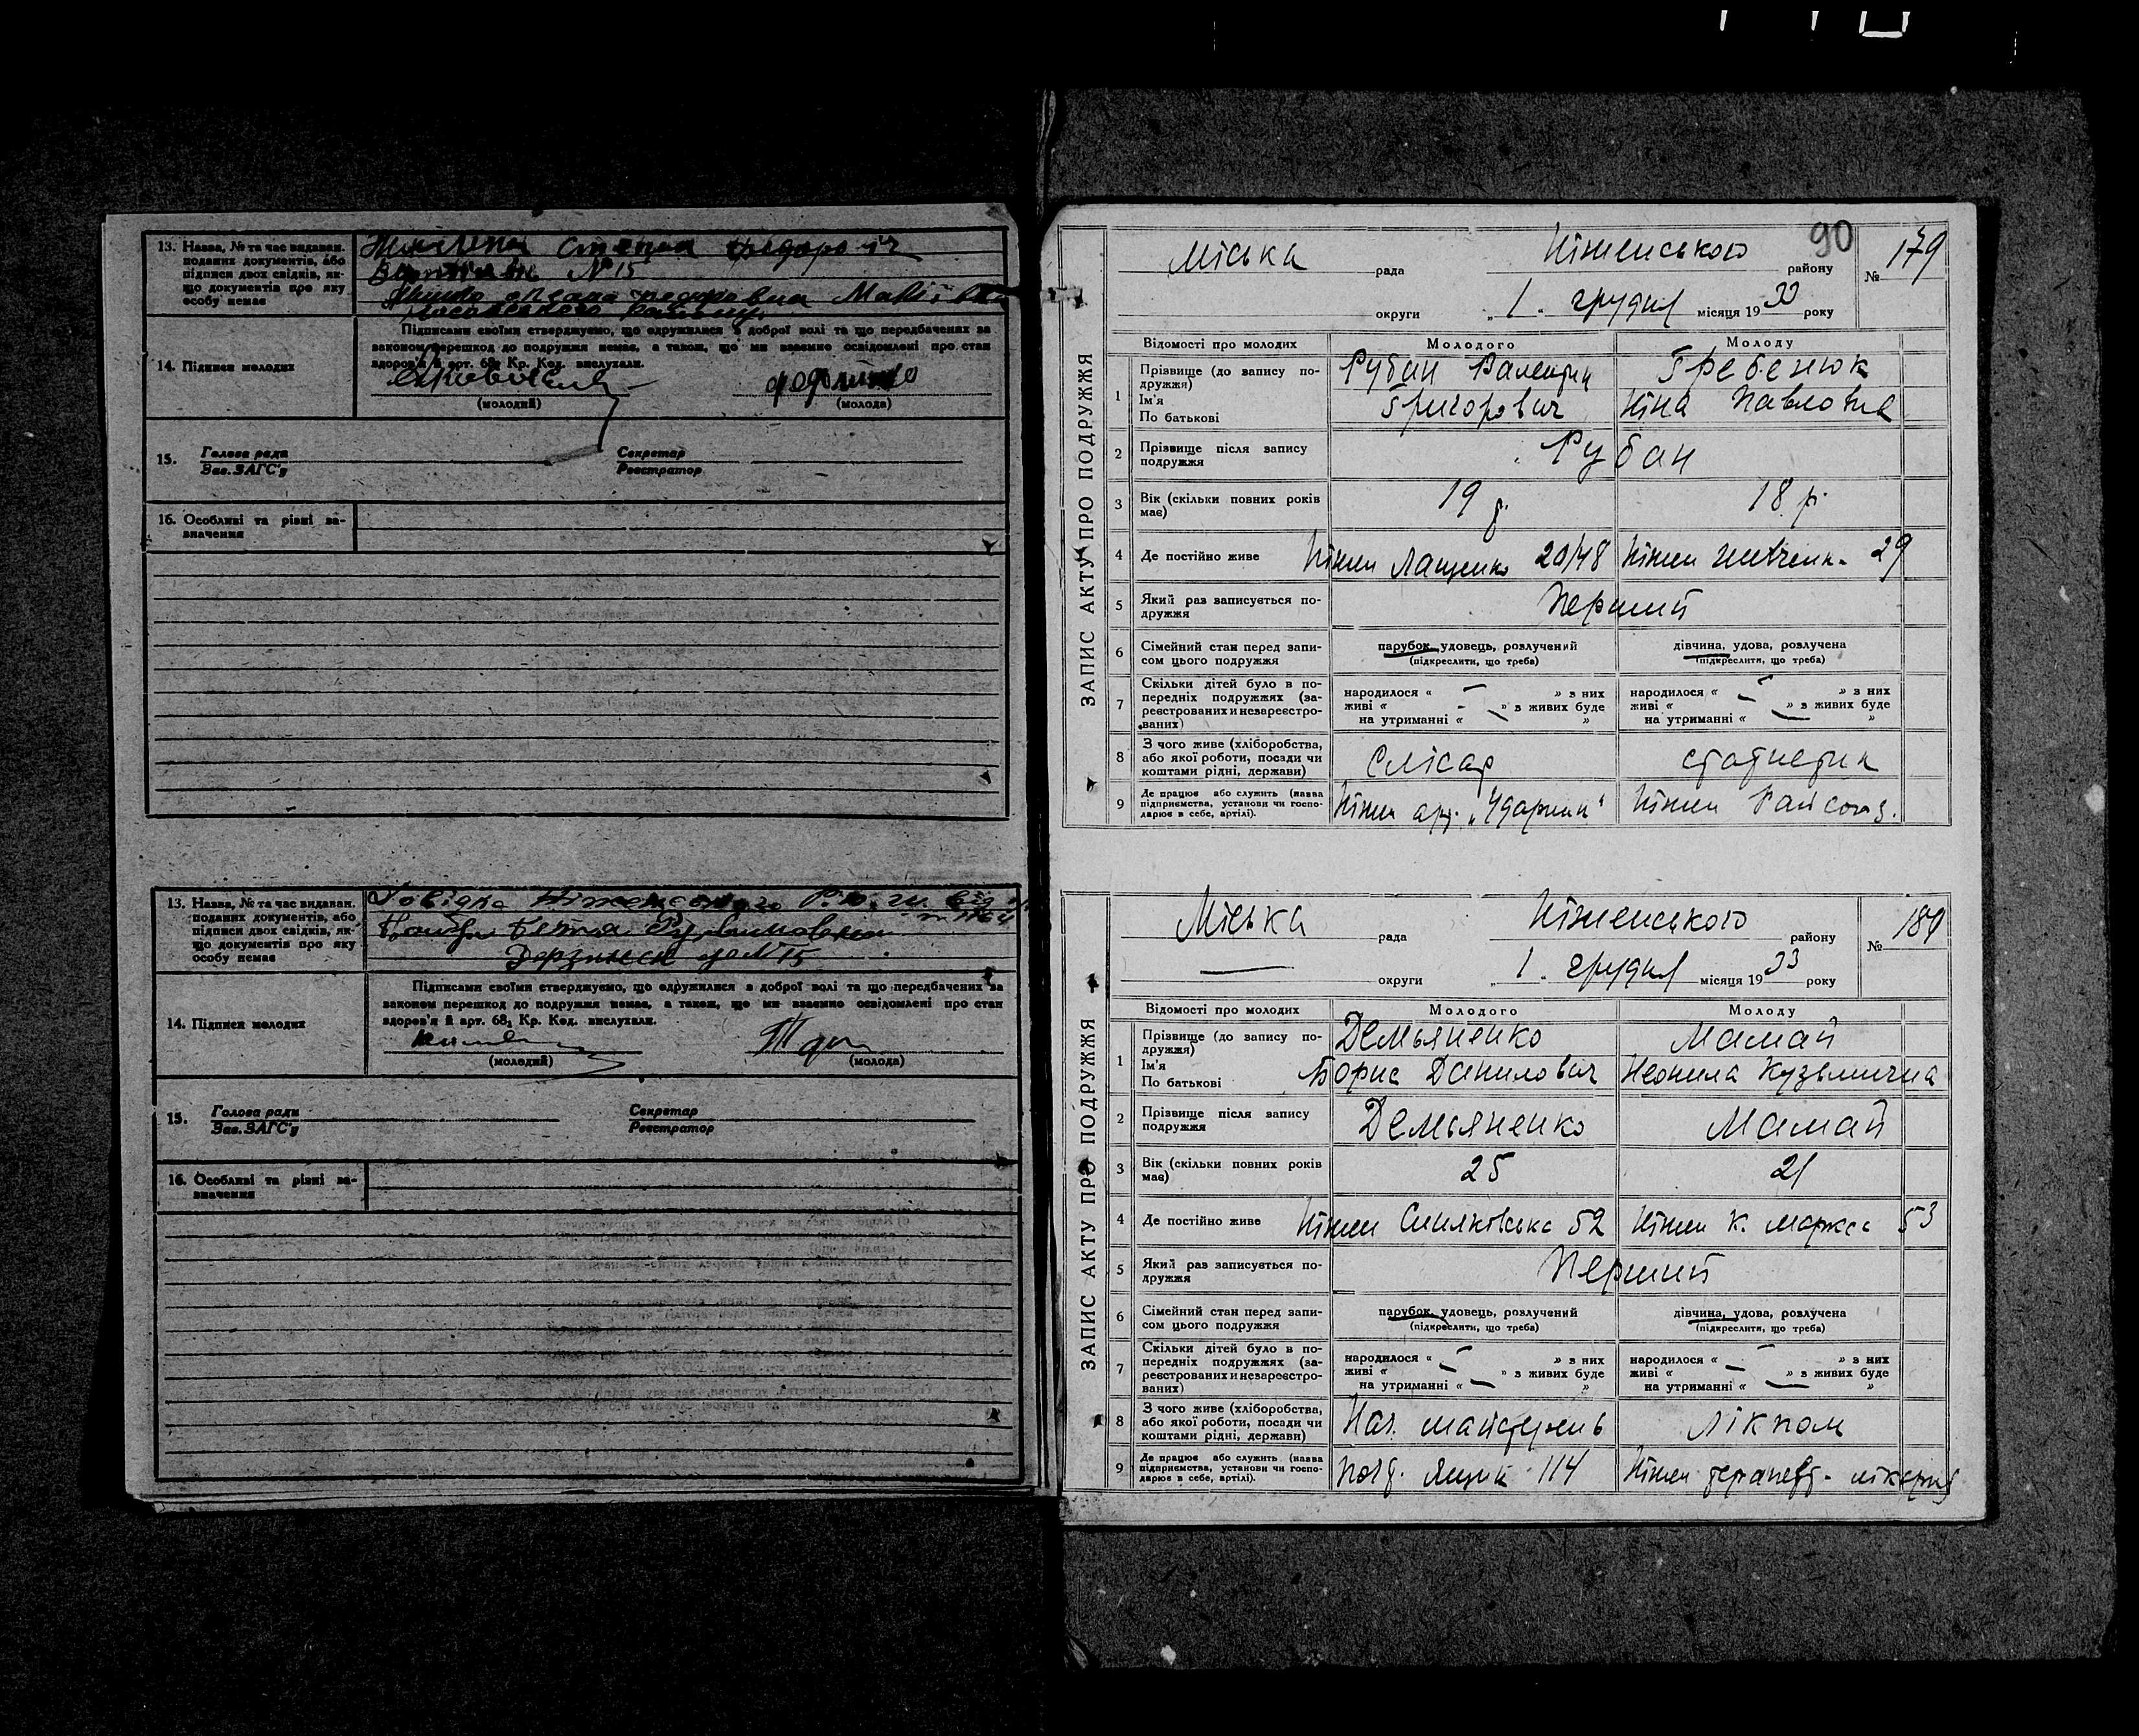 13. Назва, № та час видаван.
поданих документів, або
підписи двох свідків, як-
що документів про яку
особу немає
Степан Федорович
№ 15
14. Підписи молодих
Підписами своїми стверджуємо, що одружилися з доброї волі та що передбачених за
законом перешкод до подружжя немає, а також, що ми взаємно освідомлені про стан
здоров'я й арт. 68₁ Кр. Код. вислухали.
(молодий) (молода)
15. Голова ради
Зав. ЗАГС'у
Секретар
Реєстратор
16. Особливі та різні за-
значення
13. Назва, № та час видаван.
поданих документів, або
підписи двох свідків, як-
що документів про яку
особу немає
Довідка Ніженського
14. Підписи молодих
Підписами своїми стверджуємо, що одружилися з доброї волі та що передбачених за
законом перешкод до подружжя немає, а також, що ми взаємно освідомлені про стан
здоров'я й арт. 68₁ Кр. Код. вислухали.
(молодий) (молода)
15. Голова ради
Зав. ЗАГС'у
Секретар
Реєстратор
16. Особливі та різні за-
значення
90
ЗАПИС АКТУ ПРО ПОДРУЖЖЯ
Міська рада Ніженського району № 179
округи „ 1 „ грудня місяця 1933 року
Відомості про молодих Молодого Молоду
1 Прізвище (до запису по-
дружжя)
Ім'я
По батькові
Рубан Валентин
Григорович
Гребенюк
Ніна Павловна
2 Прізвище після запису
подружжя
Рубан
3 Вік (скільки повних років
має)
19 р. 18 р.
4 Де постійно живе Ніжен Лащенко 20/48 Ніжен Шевченк. 29
5 Який раз записується по-
дружжя
Перший
6 Сімейний стан перед запи-
сом цього подружжя
парубок, удовець, розлучений
(підкреслити, що треба)
дівчина, удова, розлучена
(підкреслити, що треба)
7 Скільки дітей було в по-
передніх подружжях (за-
реєстрованих и незареєстро-
ваних)
народилося « – » з них
живі « – » з живих буде
на утриманні « – »
народилося « – » з них
живі « – » з живих буде
на утриманні « – »
8 З чого живе (хліборобства,
або якої роботи, посади чи
коштами рідні, держави)
Слісар статистик
9 Де працює або служить (назва
підприємства, установи чи госпо-
дарює в себе, артілі).
Ніжен арт. „Ударник“ Ніжен Райсоюз.
ЗАПИС АКТУ ПРО ПОДРУЖЖЯ
Міська рада Ніженського району № 180
— округи „ 1 „ грудня місяця 1933 року
Відомості про молодих Молодого Молоду
1 Прізвище (до запису по-
дружжя)
Ім'я
По батькові
Демьяненко
Борис Данилович
Мамай
Неонила Кузьмична
2 Прізвище після запису
подружжя
Демьяненко Мамай
3 Вік (скільки повних років
має)
25 21
4 Де постійно живе Ніжен 52 Ніжен К. Маркса 53
5 Який раз записується по-
дружжя
Перший
6 Сімейний стан перед запи-
сом цього подружжя
парубок, удовець, розлучений
(підкреслити, що треба)
дівчина, удова, розлучена
(підкреслити, що треба)
7 Скільки дітей було в по-
передніх подружжях (за-
реєстрованих и незареєстро-
ваних)
народилося « – » з них
живі « – » з живих буде
на утриманні « – »
народилося « – » з них
живі « – » з живих буде
на утриманні « – »
8 З чого живе (хліборобства,
або якої роботи, посади чи
коштами рідні, держави)
Нач. майстерень лікпом
9 Де працює або служить (назва
підприємства, установи чи госпо-
дарює в себе, артілі).
пошт. Ящик 114 Ніжен терапевт. лікарня